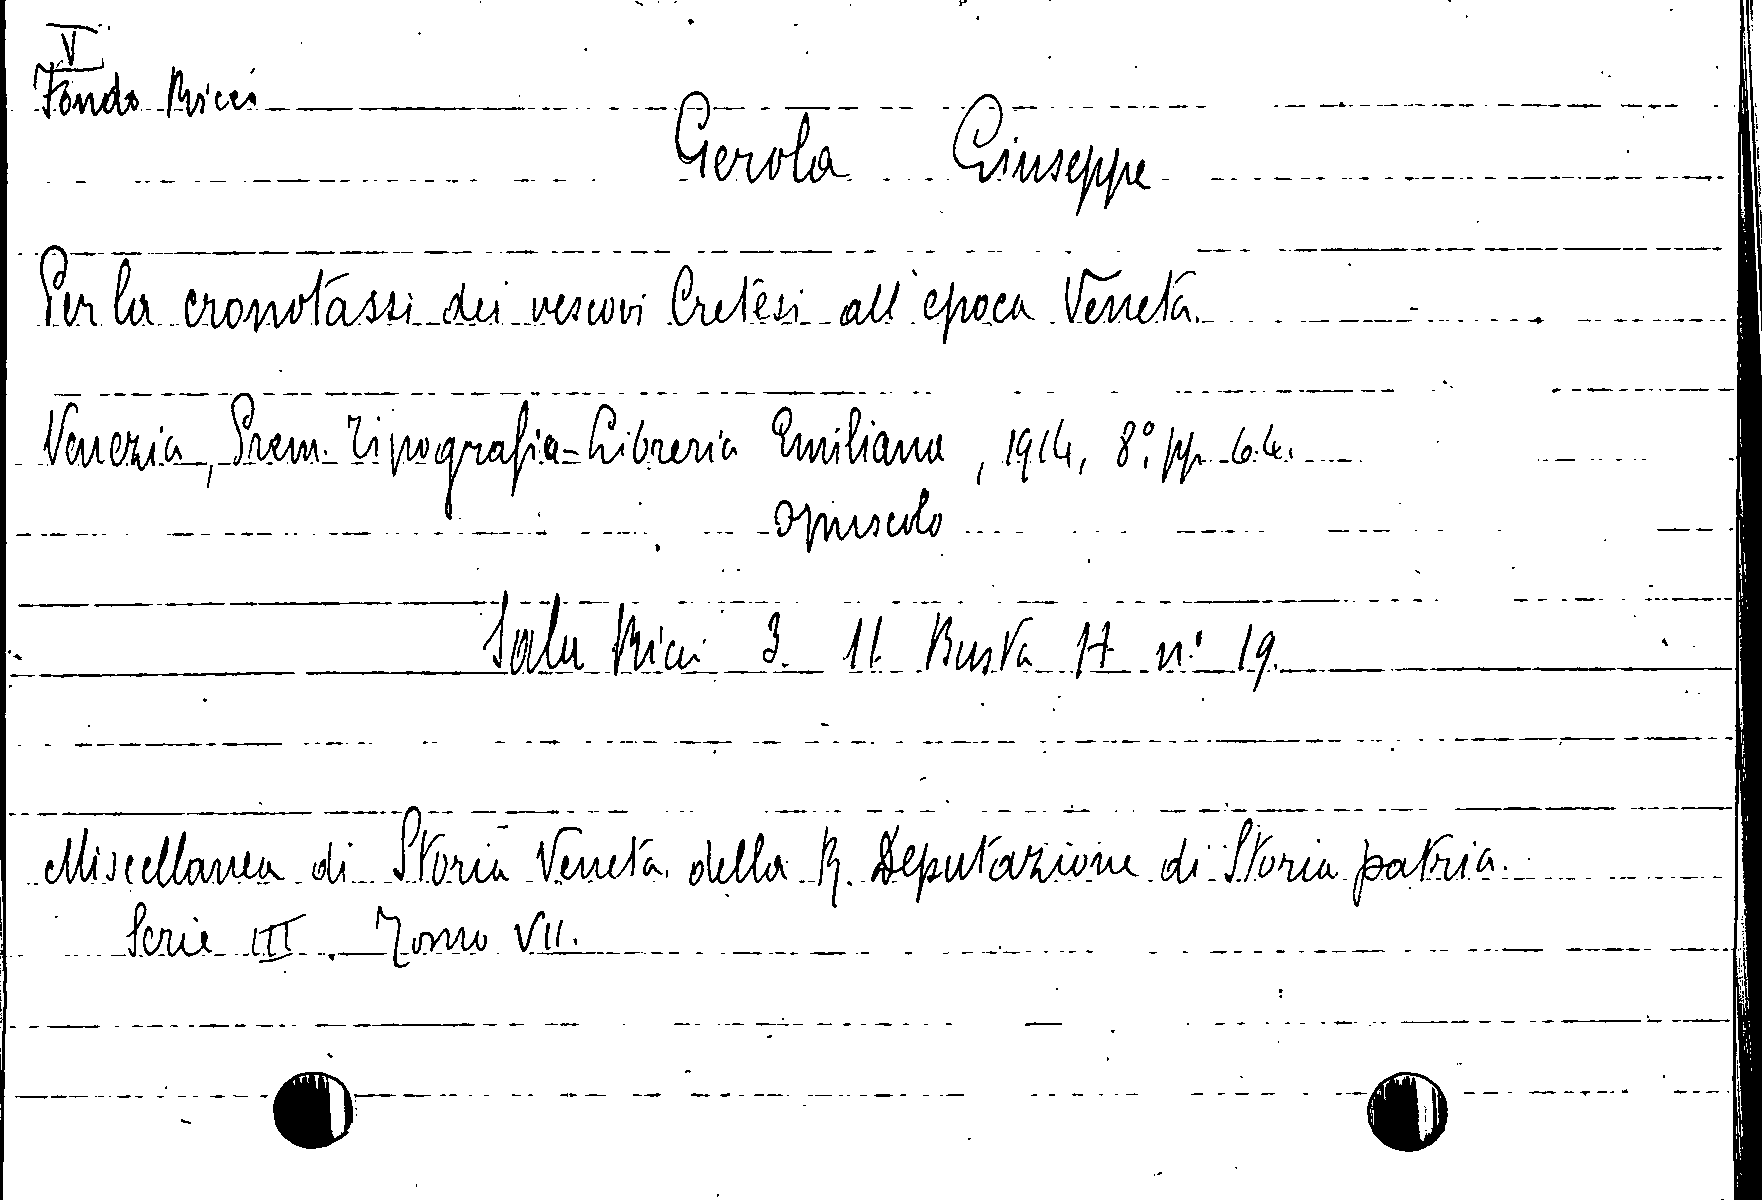 V
Fondo Ricci
Gerola Giuseppe
Per la cronotassi dei vescovi Cretesi all'epoca Veneta.
Venezia, Prem. Tipografia-Libreria Emiliana, 1914, 8° pp 64.
opuscolo
Sala Ricci 3. 11. Busta H n° 19.
Miscellanea di Storia Veneta della R. Deputazione di Storia patria.
Serie III. Tomo VII.